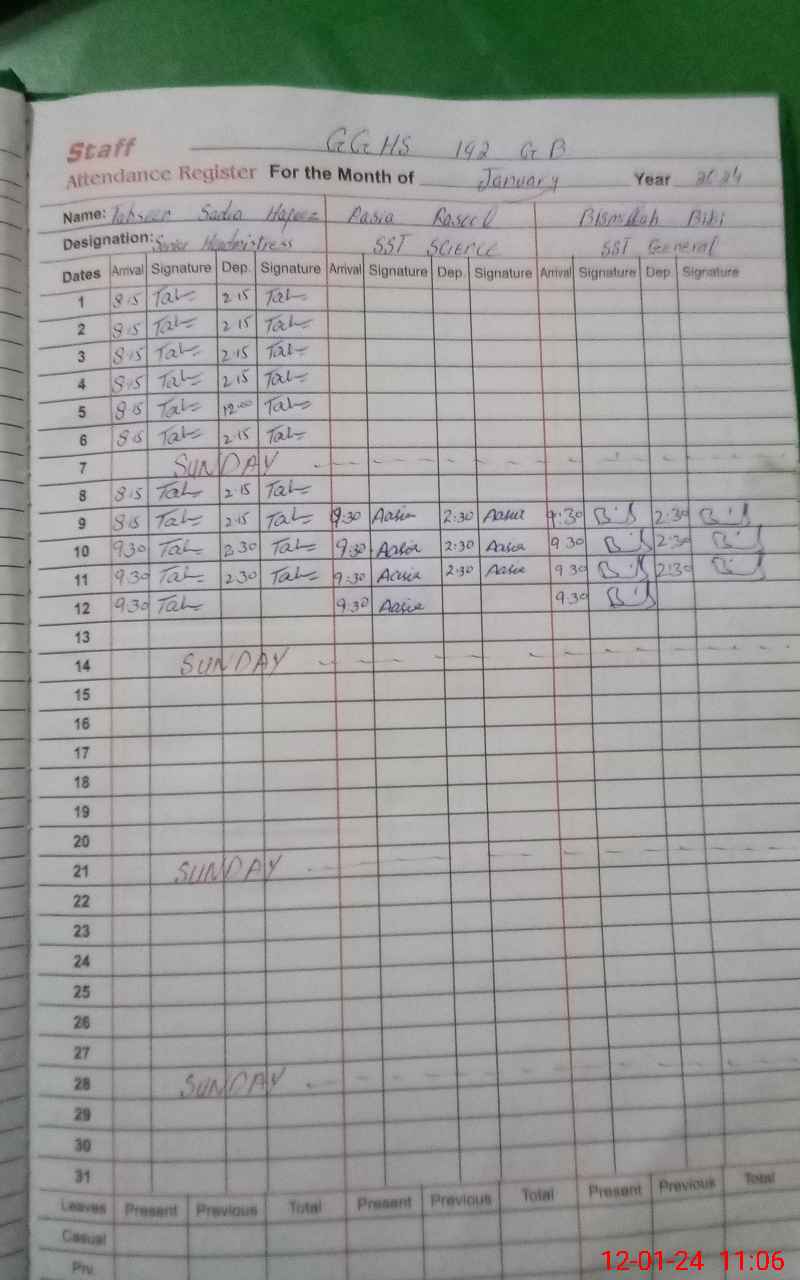 GGHS 192 GB
Staff
Attendance Register For the Month of January Year 2024
Name: Tahseen Sadia Hafeez Aasia Raseed Bismillah Bibi
Designation: Senior Headmistress SST Science SST General
Dates Arrival Signature Dep. Signature Arrival Signature Dep. Signature Arrival Signature Dep. Signature
1 8.15 Tah 2.15 Tah
2 8.15 Tah 2.15 Tah
3 8.15 Tah 2.15 Tah
4 8.15 Tah 2.15 Tah
5 8.15 Tah 12.00 Tah
6 8.15 Tah 2.15 Tah
7 SUNDAY
8 8.15 Tah 2.15 Tah
9 8.15 Tah 2.15 Tah 9:30 Aasia 2:30 Aasia 9:30 2:30
10 9.30 Tah 2.30 Tah 9:30 Aasia 2:30 Aasia 9 30 2:30
11 9.30 Tah 2.30 Tah 9:30 Aasia 2:30 Aasia 9 30 2:30
12 9.30 Tah 9.30 Aasia 9.30
13
14 SUNDAY
15
16
17
18
19
20
21 SUNDAY
22
23
24
25
26
27
28 SUNDAY
29
30
31
Leaves Present Previous Total Present Previous Total Present Previous Total
Casual
Prv.
12-01-24 11:06